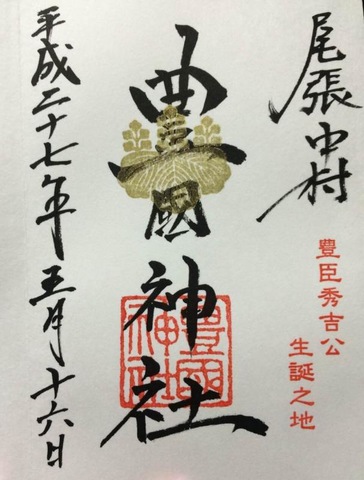 尾張中村
豐臣秀吉公
生誕之地
豐國神社
豐國
神社
平成二十七年五月十六日